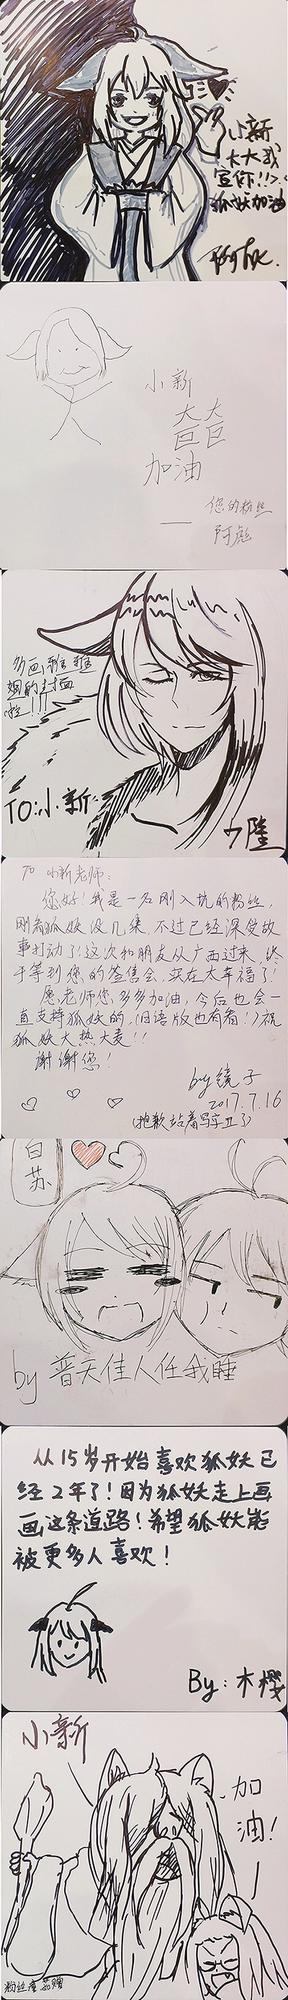 小新
大大我
宣你!!
狐妖加油
小新
大大
巨巨
加油
您的粉丝
—— 阿彪
多画雅雅
姐的封面
啦!!!
TO:小新
TO 小新老师:
您好!我是一名刚入坑的粉丝,
刚看狐妖没几集,不过已经深受故
事打动了!这次和朋友从广西过来,终
于等到您的签售会,实在太幸福了!
愿老师您,多多加油,今后也会一
直支持狐妖的,(日语版也有看!)祝
狐妖大热大麦!!
谢谢您!
by 镜子
2017.7.16
(抱歉站着写字丑了)
白
苏
by 普天佳人任我睡
从15岁开始喜欢狐妖已
经2年了!因为狐妖走上画
画这条道路!希望狐妖能
被更多人喜欢!
By:木樱
小新
加
油!